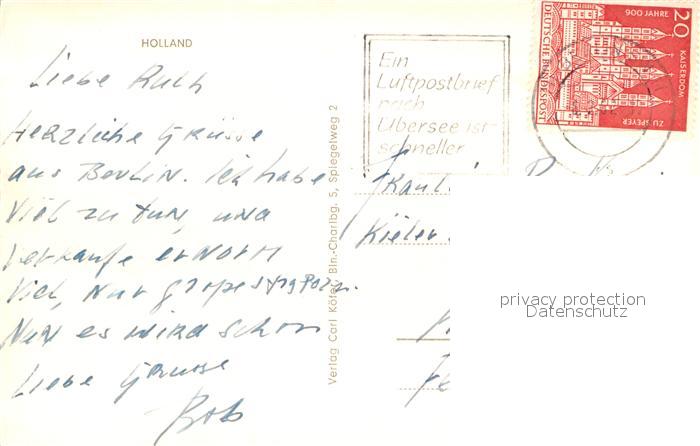 HOLLAND
Liebe Ruth
Herzliche Grüsse
aus Berlin. Ich habe
viel zu tun, und
verkaufe enorm
viel, nur
Nun es wird schon
Liebe Grüsse
Bob
Verlag Carl Köfer, Bln.-Charlbg. 5, Spiegelweg 2
Ein
Luftpostbrief
nach
Übersee ist
schneller
DEUTSCHE BUNDESPOST
900 JAHRE
KAISERDOM
ZU SPEYER
20
Kieler
privacy protection
Datenschutz